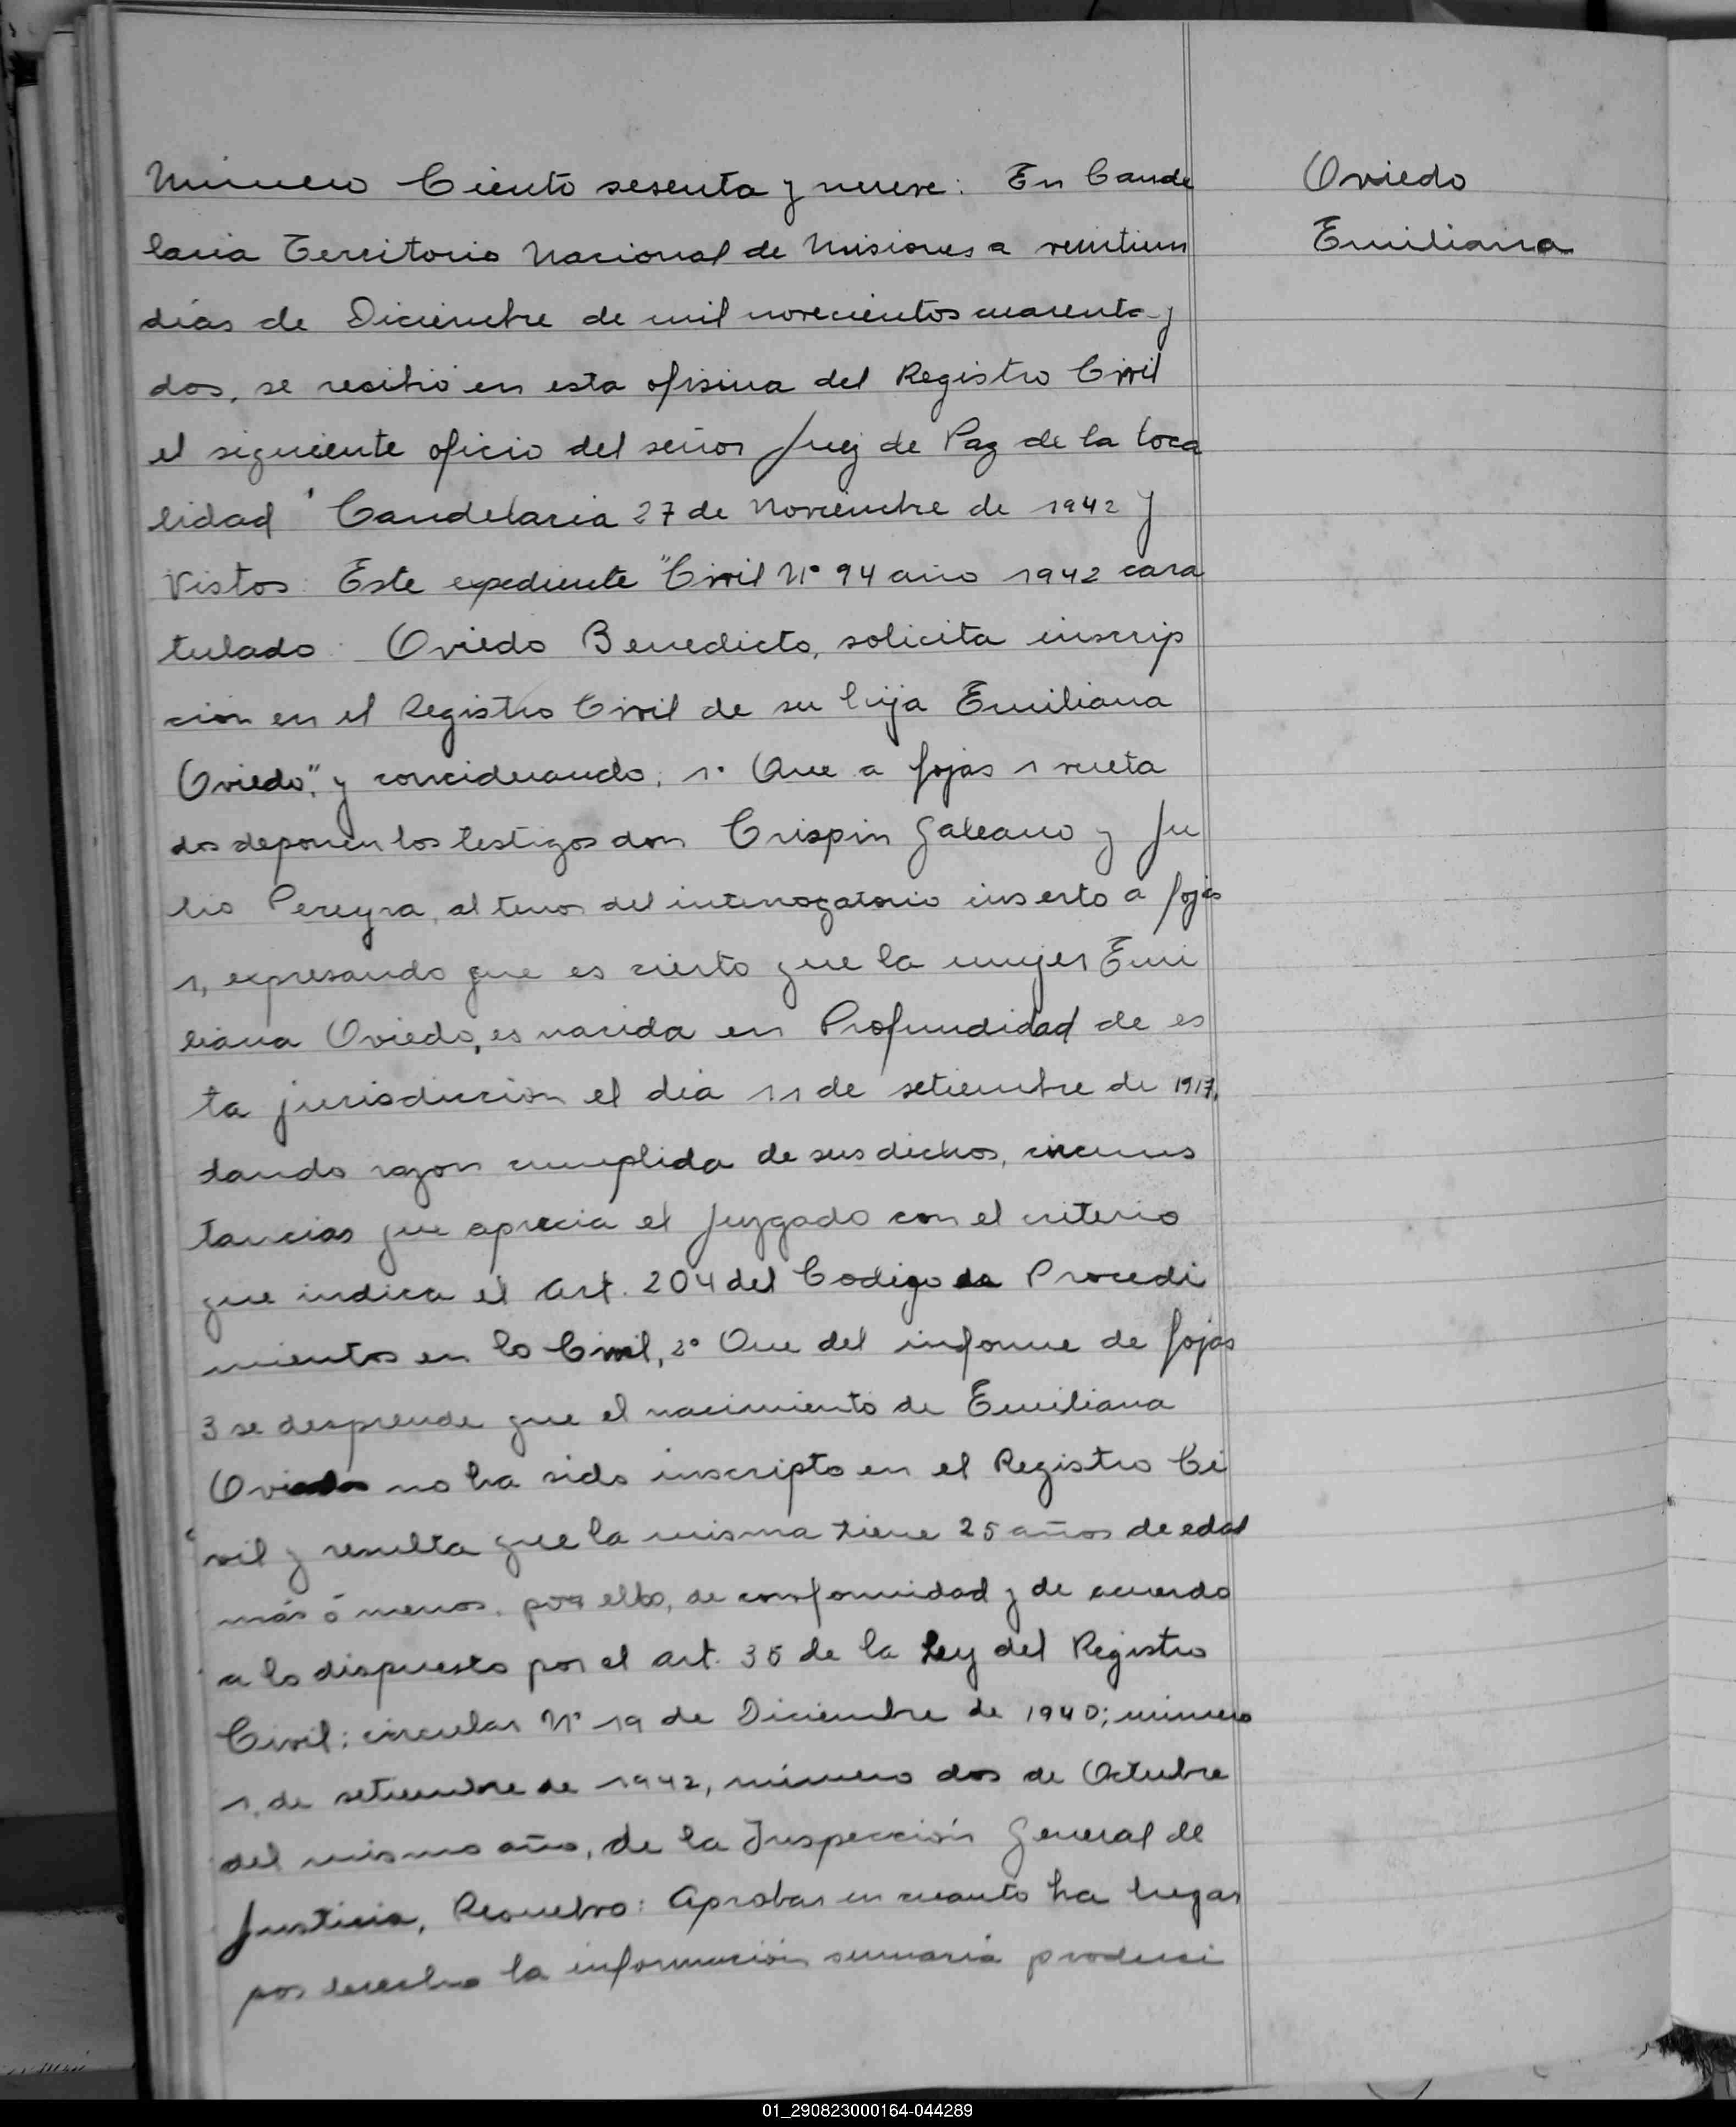 Número Ciento sesenta y nueve: En Cande
laria Territorio Nacional de Misiones a veintiun
días de Diciembre de mil novecientos cuarenta y
dos, se recibió en esta ofisina del Registro Civil
el siguiente oficio del señor Juez de Paz de la loca
lidad "Candelaria 27 de Noviembre de 1942 y
Vistos: Este expediente "Civil Nº 94 año 1942 cara
tulado: Oviedo Benedicto, solicita inscrip
cion en el Registro Civil de su hija Emiliana
Oviedo", y conciderando; 1º Que a fojas 1 vueta
dos deponen los testigos don Crispin Galeano y Ju
lio Pereyra, al tenor del interrogatorio inserto a fojas
1, expresando que es cierto que la mujer Emi
liana Oviedo, es nacida en Profundidad de es
ta jurisdiccion el día 11 de setiembre de 1917,
dando razon cumplida de sus dichos, circuns
tancias que aprecia el Juzgado con el criterio
que indica el Art. 204 del Codigo de Procedi
mientos en lo Civil, 2º Que del informe de fojas
3 se desprende que el nacimiento de Emiliana
Oviedo no ha sido inscripto en el Registro Ci
vil y resulta que la misma tiene 25 años de edad
más ó menos, por ello, de conformidad y de acuerdo
a lo dispuesto por el art. 35 de la Ley del Registro
Civil; circular Nº 19 de Diciembre de 1940; número
1, de setiembre de 1942, número dos de Octubre
del mismo año, de la Inspección General de
Justicia, Resuelvo: Aprobar en cuanto ha lugar
por derecho la información sumaria produci
Oviedo
Emiliana
01_290823000164-044289